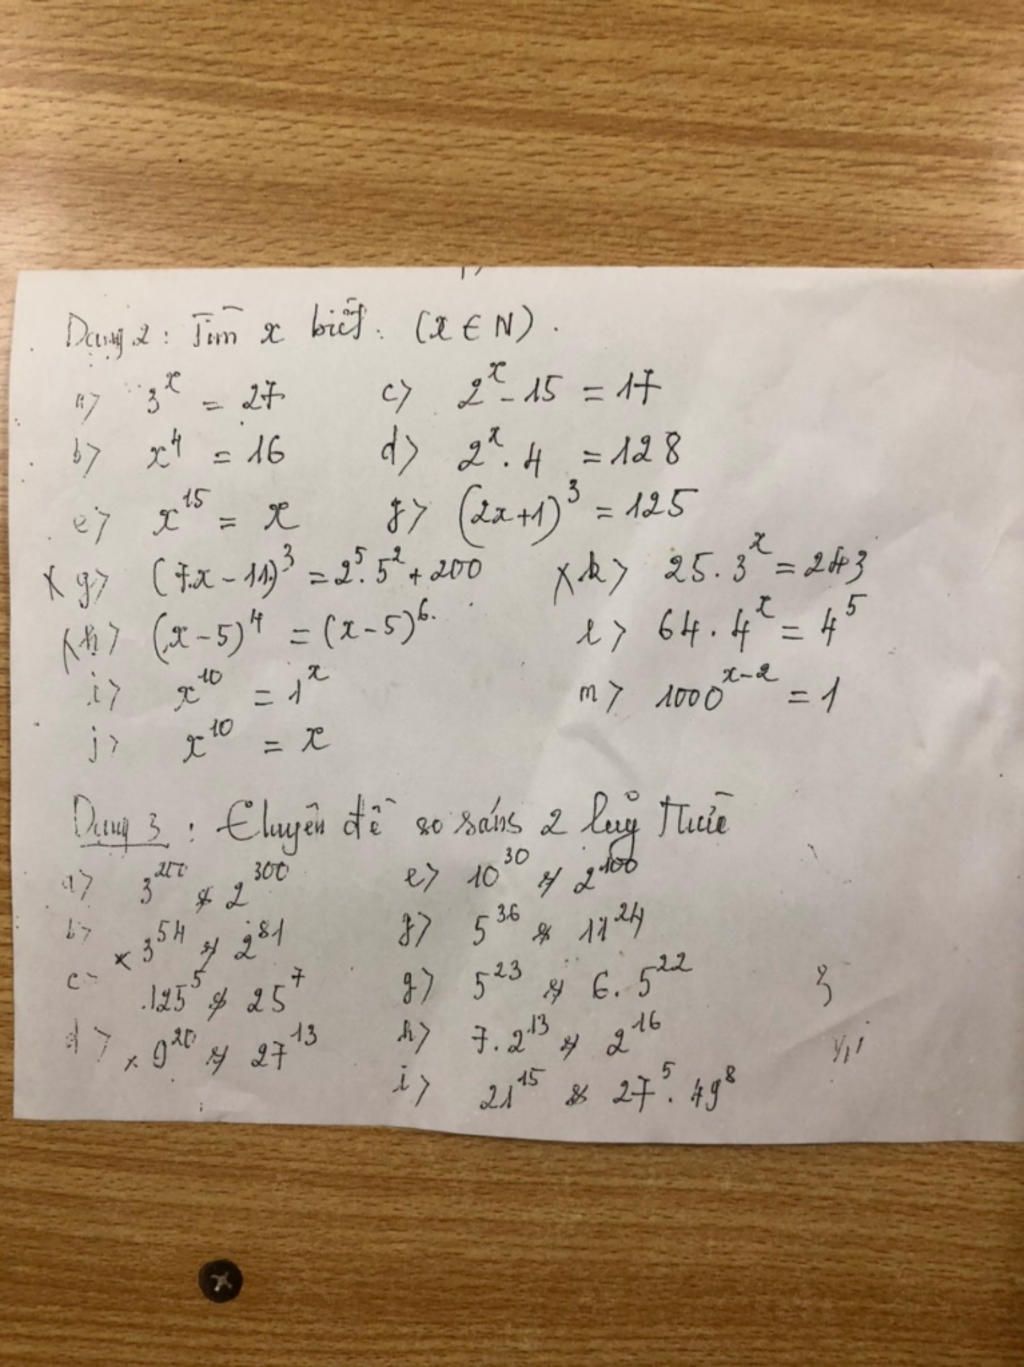 Dạng 2: Tìm x biết: (x ∈ N).
a> 3^x = 27 c> 2^x - 15 = 17
b> x^4 = 16 d> 2^x . 4 = 128
e> x^15 = x g> (2x+1)^3 = 125
x g> (7.x - 11)^3 = 2^5 . 5^2 + 200 x k> 25 . 3^x = 243
x h> (x-5)^4 = (x-5)^6. l> 64 . 4^x = 4^5
i> x^10 = 1^x m> 1000^(x-2) = 1
j> x^10 = x
Dạng 3: Chuyên đề so sánh 2 lũy thừa
a> 3^200 & 2^300 e> 10^30 & 2^100
b> x 3^54 & 2^81 g> 5^36 & 11^24
c> 125^5 & 25^7 g> 5^23 & 6 . 5^22
d> x 9^20 & 27^13 h> 7 . 2^13 & 2^16
i> 21^15 & 27^5 . 49^8